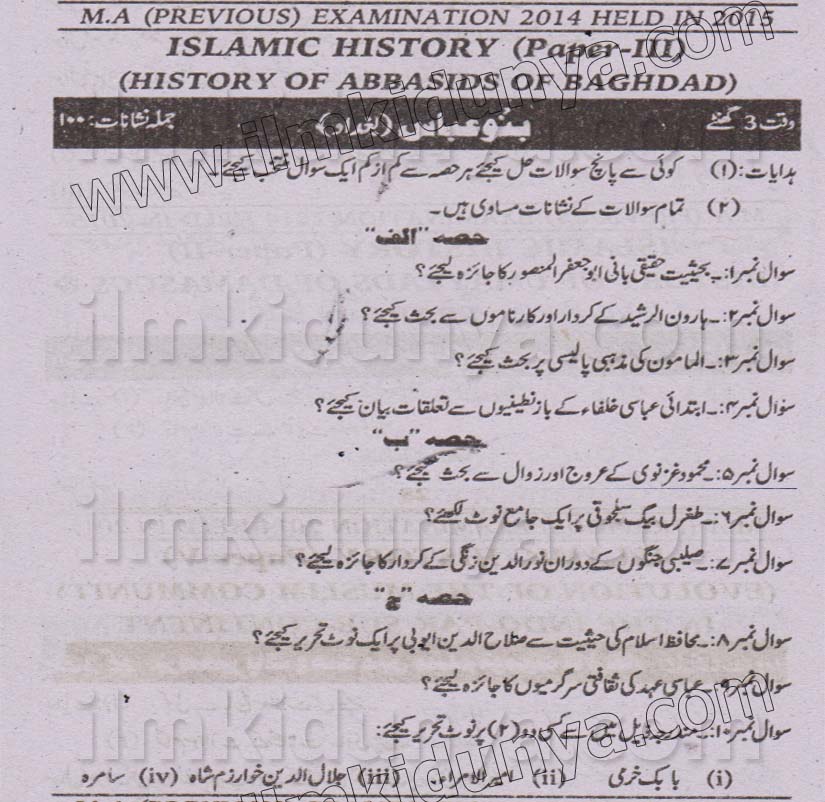 M.A (PREVIOUS) EXAMINATION 2014 HELD IN 2015
ISLAMIC HISTORY (Paper-III)
(HISTORY OF ABBASIDS OF BAGHDAD)
وقت 3 گھنٹے بنو عباس (بغداد) جملہ نشانات: ۱۰۰
ہدایات: (۱) کوئی سے پانچ سوالات حل کیجئے ہر حصہ سے کم از کم ایک سوال منتخب کیجئے۔
(۲) تمام سوالات کے نشانات مساوی ہیں۔
حصہ "الف"
سوال نمبر ۱:۔ بحیثیت حقیقی بانی ابو جعفر المنصور کا جائزہ لیجئے؟
سوال نمبر ۲:۔ ہارون الرشید کے کردار اور کارناموں سے بحث کیجئے؟
سوال نمبر ۳:۔ المامون کی مذہبی پالیسی پر بحث کیجئے؟
سوال نمبر ۴:۔ ابتدائی عباسی خلفاء کے بازنطینیوں سے تعلقات بیان کیجئے؟
حصہ "ب"
سوال نمبر ۵:۔ محمود غزنوی کے عروج اور زوال سے بحث کیجئے؟
سوال نمبر ۶:۔ طغرل بیگ سلجوقی پر ایک جامع نوٹ لکھئے؟
سوال نمبر ۷:۔ صلیبی جنگوں کے دوران نور الدین زنگی کے کردار کا جائزہ لیجئے؟
حصہ "ج"
سوال نمبر ۸:۔ محافظ اسلام کی حیثیت سے صلاح الدین ایوبی پر ایک نوٹ تحریر کیجئے؟
سوال نمبر ۹:۔ عباسی عہد کی ثقافتی سرگرمیوں کا جائزہ لیجئے؟
سوال نمبر ۱۰:۔ مندرجہ ذیل میں سے کسی دو (۲) پر نوٹ تحریر کیجئے:
(i) بابک خرمی (ii) امیر الامراء (iii) جلال الدین خوارزم شاہ (iv) سامرہ
www.ilmkidunya.com
ilmkidunya.com
ilmkidunya.com
ilmkidunya.com
ilmkidunya.com